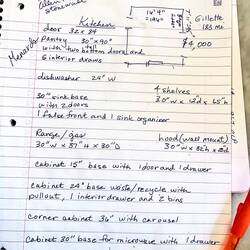 Kitchen
Gillette
185 mi
door 32 x 84
Pantry 30" x 90"
with two bottom doors and
interior draws
$4,000
Menards
dishwasher 24" W
30" sink base
with 2 doors
1 false front and 1 sink organizer
4 shelves
30" W x 12" d x 65" h
Range / gas
30" W x 37" H x 30" D
hood (wall mount)
cabinet 15" base with 1 door and 1 drawer
cabinet 24" base waste/recycle with
pullout, 1 interior drawer and 2 bins
corner cabinet 36" with carousel
cabinet 30" base for microwave with 1 drawer